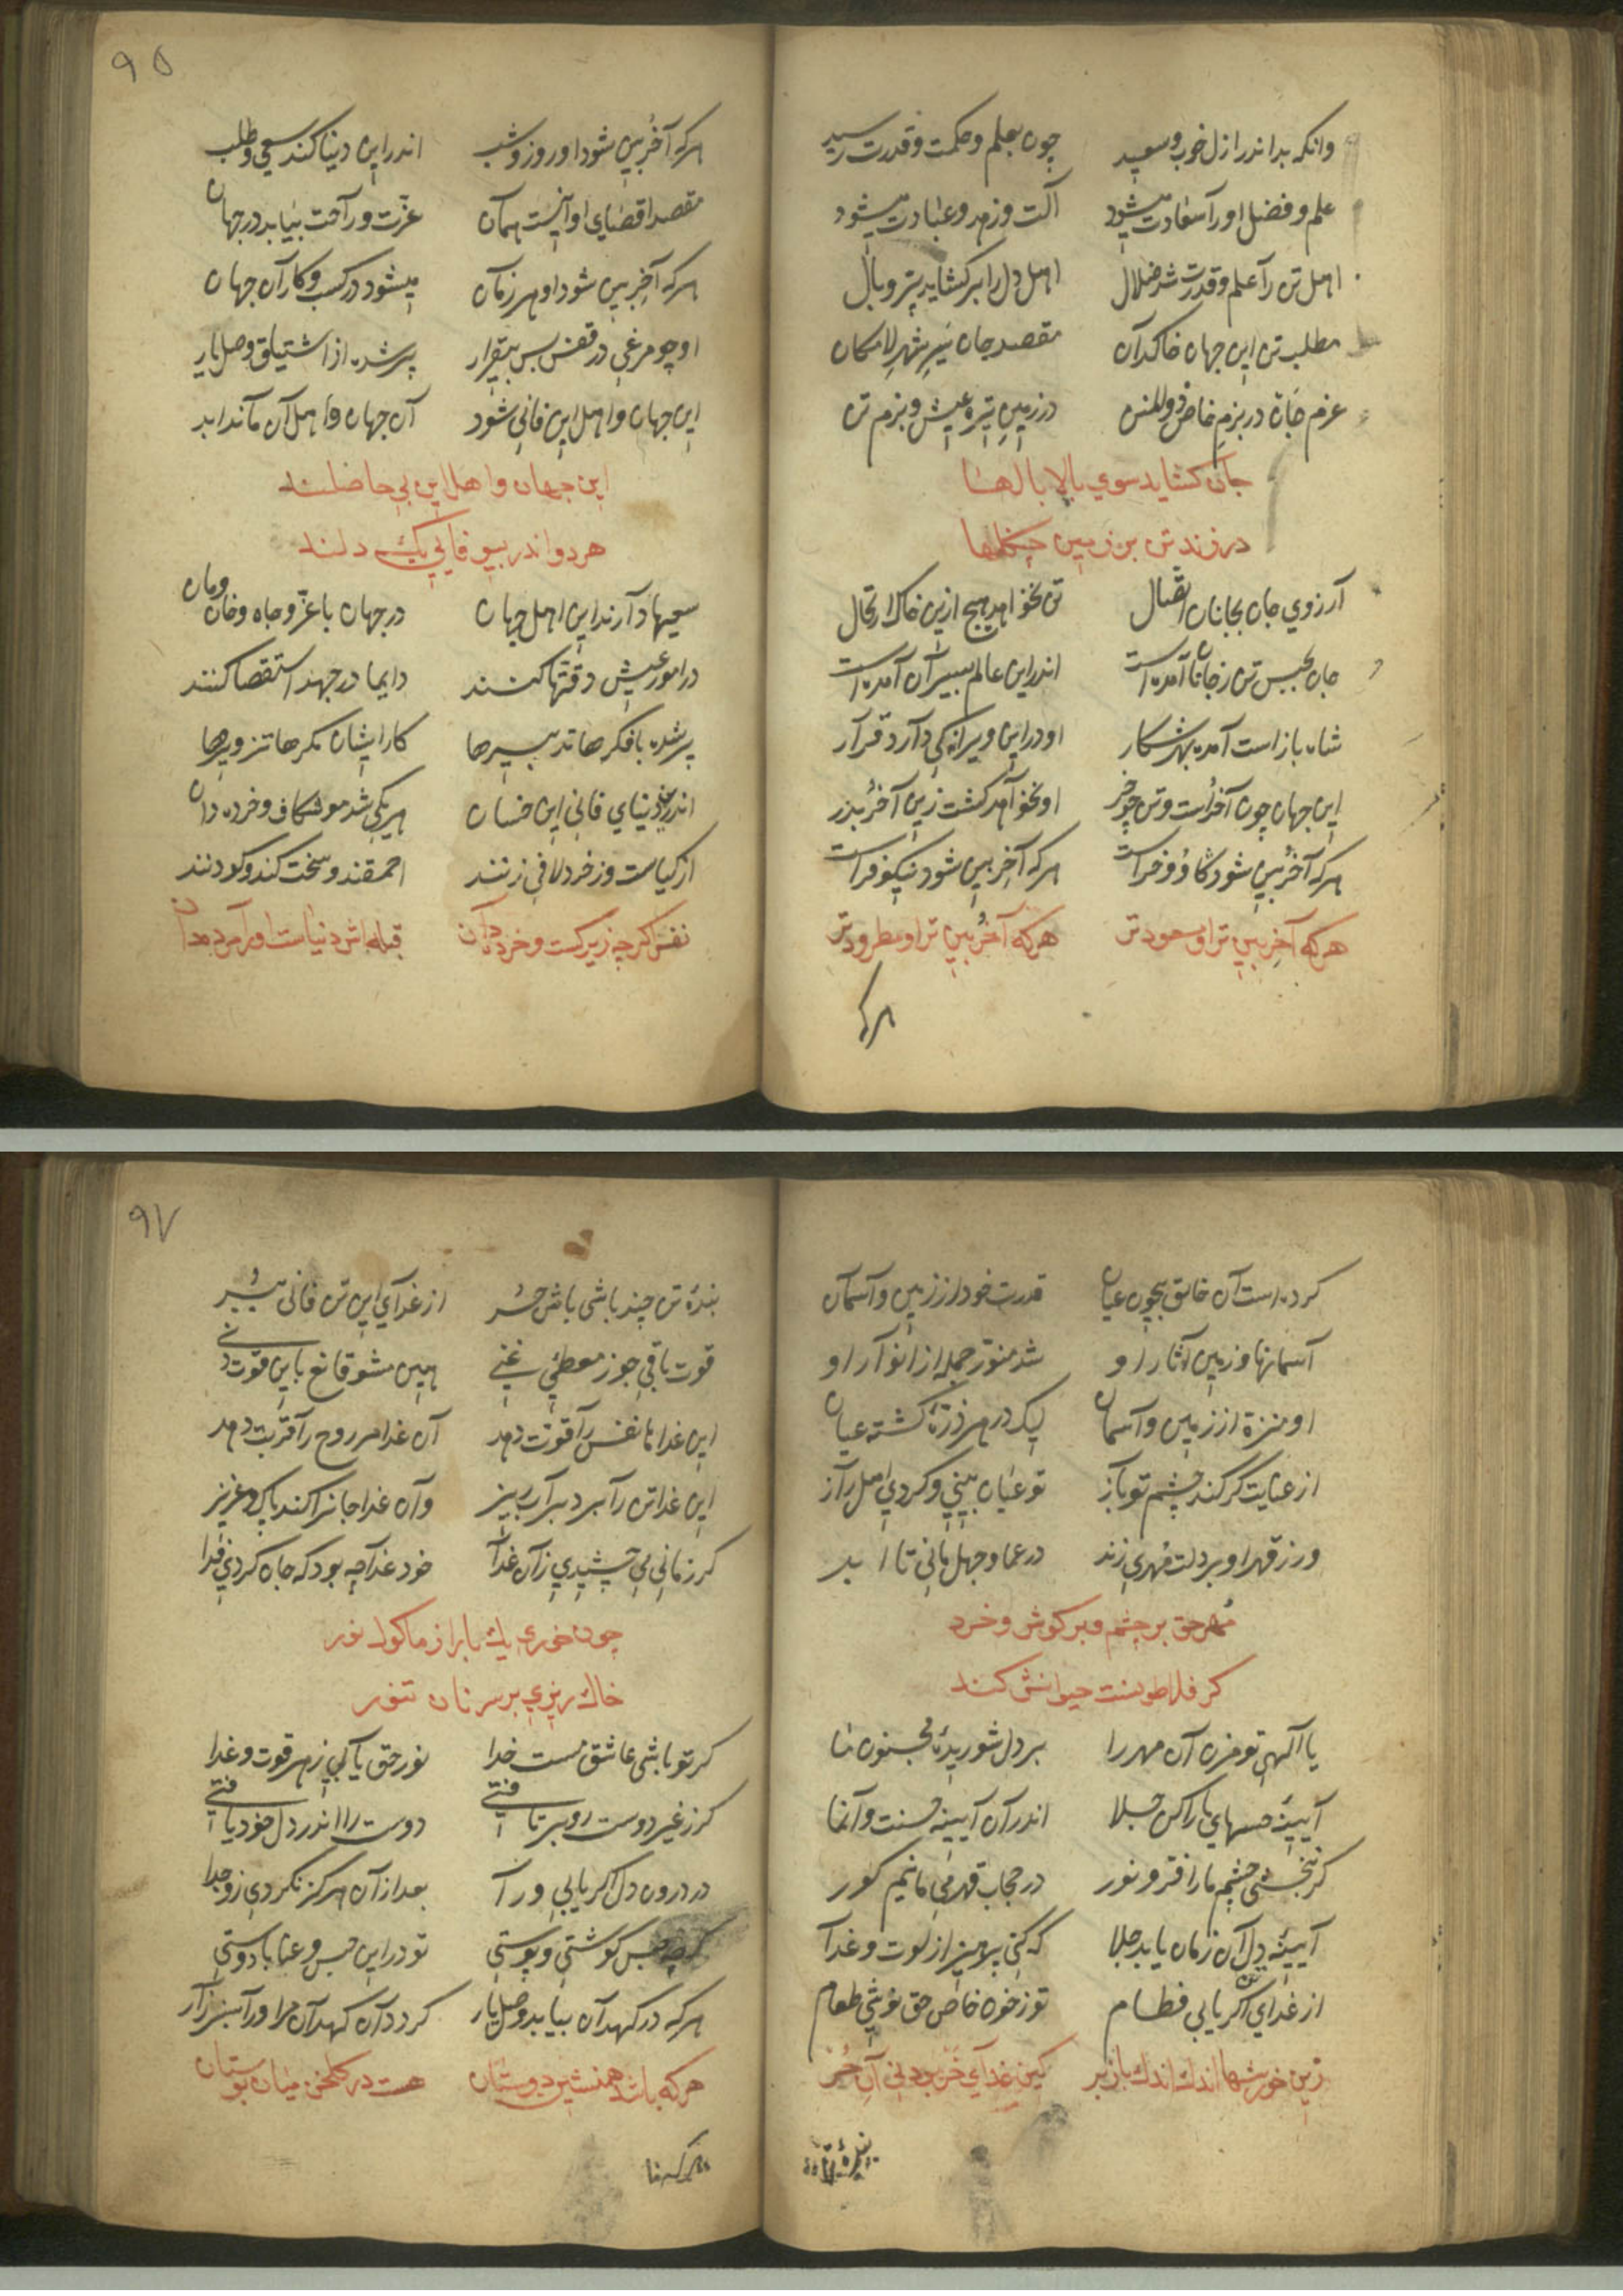 وانکه بد اندر ازل خوب و سعید چون بعلم و حکمت و قدرت رسید
علم و فضل او را سعادت میشود آلت و زهد و عبادت میشود
اهل تن را علم و قدرت شد ضلال اهل دل را برکشاید پر و بال
مطلب تن این جهان خاکدان مقصد جان سیر شهر لامکان
عزم جان در بزم خاص ذو المنن در زمین تیره عیش و بزم تن
جان کشاید سوی بالا بالها
در زند تن بر زمین چنکالها
آرزوی جان بجانان اتصال تن نخواهد هیچ ازین خاک ارتحال
جان بحبس تن ز جانان آمده است اندر این عالم بسیران آمده است
شاه باز است آمده بهر شکار او در این ویرانه کی دارد قرار
این جهان چون آخُر است و تن چو خر او نخواهد کشت زین آخُر بدر
هرکه آخُر بین شود کاو و خر است هرکه آخِر بین شود نیکو فر است
هرکه آخِر بین تر او مسعودتر هرکه آخُر بین تر او مطرودتر
هرکه
۹۵
هرکه آخُر بین شود او روز و شب اندر این دنیا کند سعی و طلب
مقصد اقصای او اینست همان عزت و راحت بیابد در جهان
هرکه آخِر بین شود او هر زمان میشود در کسب و کار آن جهان
او چو مرغی در قفس بس بیقرار پر شده از اشتیاق وصل یار
این جهان و اهل این فانی شود آن جهان و اهل آن ماند ابد
این جهان و اهل این بی حاصلند
هر دو اندر بیوفایی یک دلند
سعیها دارند این اهل جهان در جهان با عز و جاه و خان و مان
در امور عیش دقتها کنند دایما در جهد استقصا کنند
پر شده با فکرها تدبیرها کار ایشان مکرها تزویرها
اندرین دنیای فانی این خسان هر یکی شد موشکاف و خرده دان
از کیاست وز خرد لافی زنند احمقند و سخت کند و کودنند
نفس اکرچه زیرکست و خرده دان قبله اش دنیاست او را مرده دان
کرده است آن خالق بیچون عیان قدرت خود از زمین و آسمان
آسمانها و زمین آثار او شد منور جمله از انوار او
او منزه از زمین و آسمان لیک در هر ذره کشته عیان
از عنایت کر کند چشم تو باز تو عیان بینی و کردی اهل راز
ور ز قهر او بر دلت مهری زند در عما و جهل مانی تا ابد
مهر حق بر چشم و بر کوش و خرد
کر فلاطونست حیوانش کند
یا الهی تو مزن آن مهر را بر دل شوریدهٔ مجنون ما
آیینهٔ حسهای ما را کن جلا اندر آن آیینه حسنت وانما
کر نبخشی چشم ما را فر و نور در حجاب قهر می مانیم کور
آیینهٔ دل آن زمان یابد جلا که کنی پرهیز از لوت و غدا
از غدای تن اکر یابی فطام تو ز خوان خاص حق نوشی طعام
زین خورشها اندک اندک باز بر کین غدای خر بود نی آن حر
بندهٔ تن
۹۷
بندهٔ تن چند باشی باش حر از غدای این تن فانی ببر
قوت باقی جوز معطیّ غنی هین مشو قانع باین قوت دنی
این غداها نفس را قوت دهد آن غدا مر روح را قربت دهد
این غدا تن را برد بر آب ریز وآن غدا جانرا کند پاک و عزیز
کر زمانی می چشیدی زان غدا خود غدا چه بود که جان کردی فدا
چون خوری یک بار از ماکول نور
خاک ریزی بر سر نان تنور
کر تو باشی عاشق مست خدا نور حق یابی ز هر قوت و غدا
کر ز غیر دوست رو بر تافتی دوست را اندر دل خود یافتی
در درون دل اکر یابی ورا بعد از آن هرکز نکردی زو جدا
کرچه حبس کوشتی و پوستی تو در این حبس و عنا با دوستی
هرکه در کهدان بیابد وصل یار کردد آن کهدان مر او را سبزه زار
هرکه باشد همنشین دوستان هست در کلخن میان بوستان